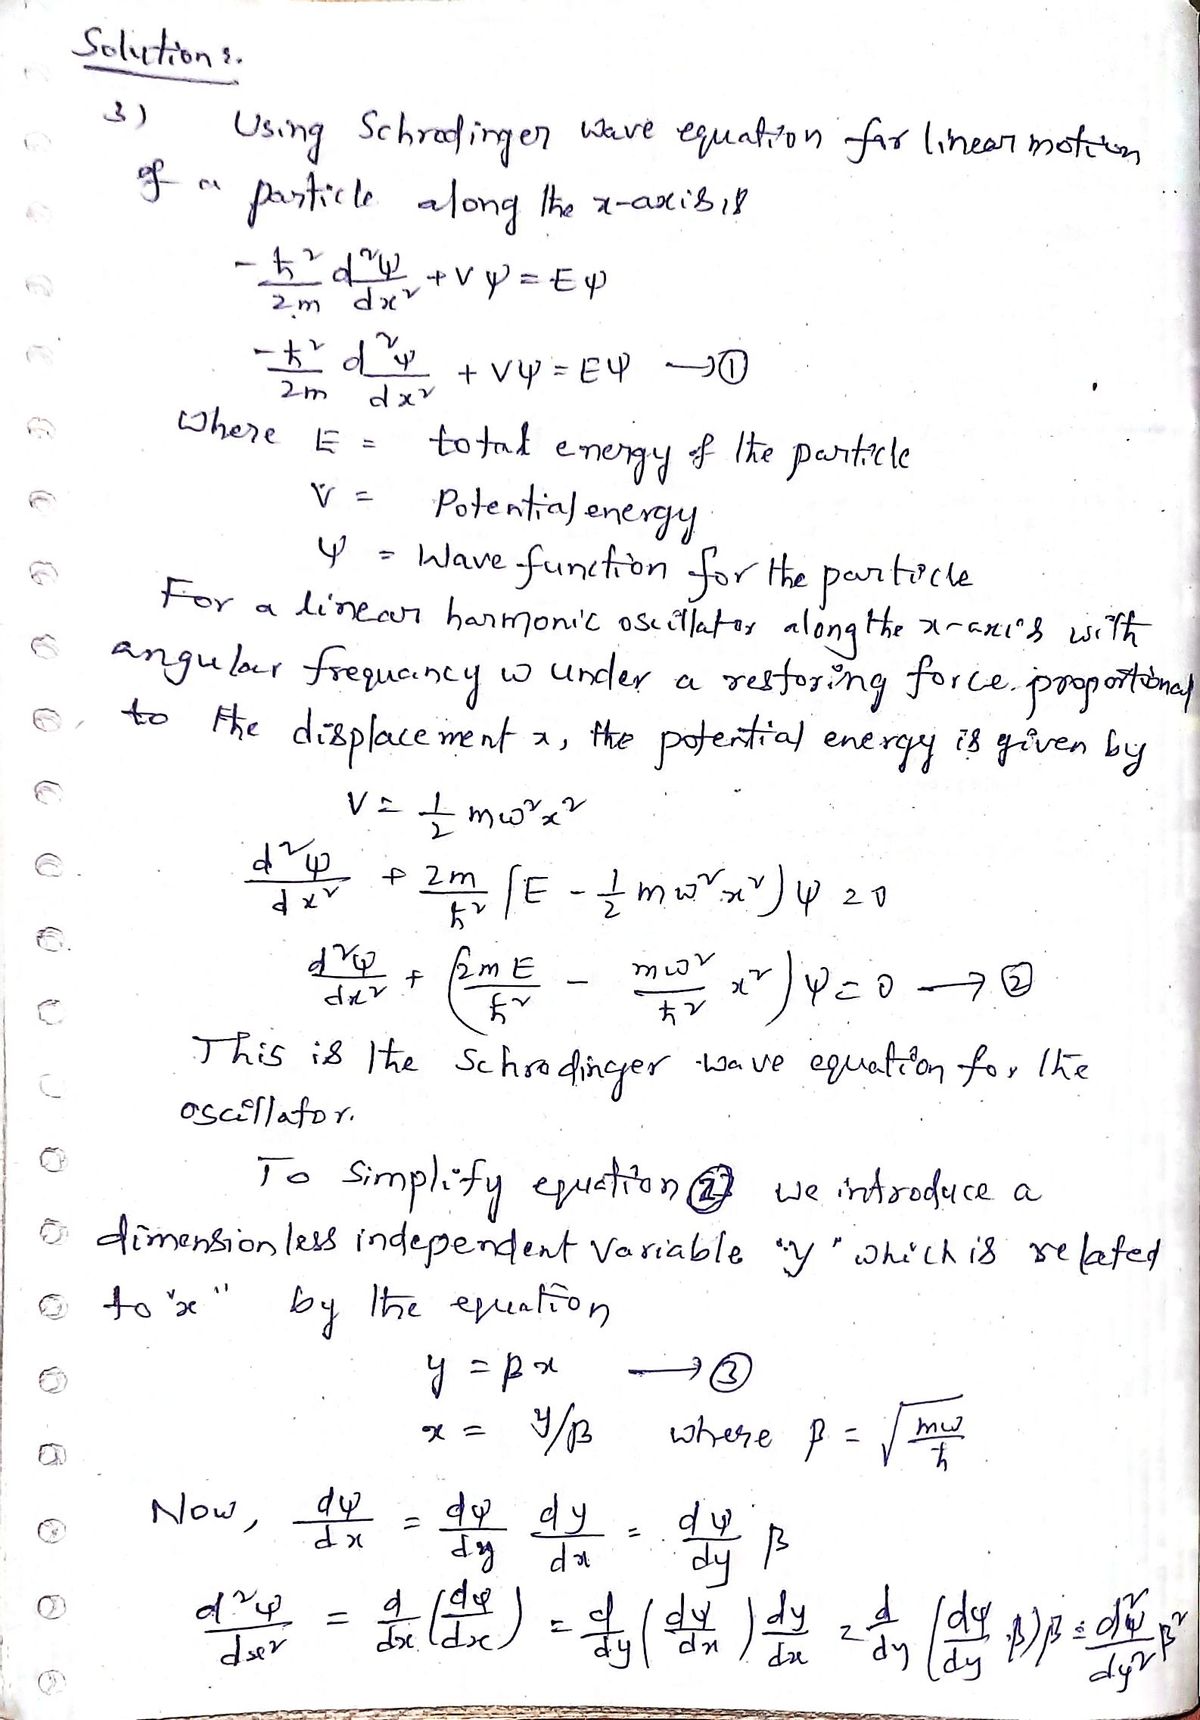 Solutions.
3) Using Schrodinger wave equation for linear motion
of a particle along the x-axis is
-ħ²/2m d²ψ/dx² + Vψ = Eψ
-ħ²/2m d²ψ/dx² + Vψ = Eψ → ①
Where E = total energy of the particle
V = Potential energy
ψ = Wave function for the particle
For a linear harmonic oscillator along the x-axis with
angular frequency ω under a restoring force proportional
to the displacement x, the potential energy is given by
V = 1/2 mω²x²
d²ψ/dx² + 2m/ħ² [E - 1/2 mω²x²) ψ = 0
d²ψ/dx² + (2mE/ħ² - mω²/ħ² x²) ψ = 0 → ②
This is the Schrodinger wave equation for the
oscillator.
To simplify equation ② we introduce a
dimensionless independent variable "y" which is related
to "x" by the equation
y = βx → ③
x = y/β where β = √(mω/ħ)
Now, dψ/dx = dψ/dy dy/dx = dψ/dy β
d²ψ/dx² = d/dx (dψ/dx) = d/dy (dψ/dx) dy/dx = d/dy (dψ/dy β) β = d²ψ/dy² β²